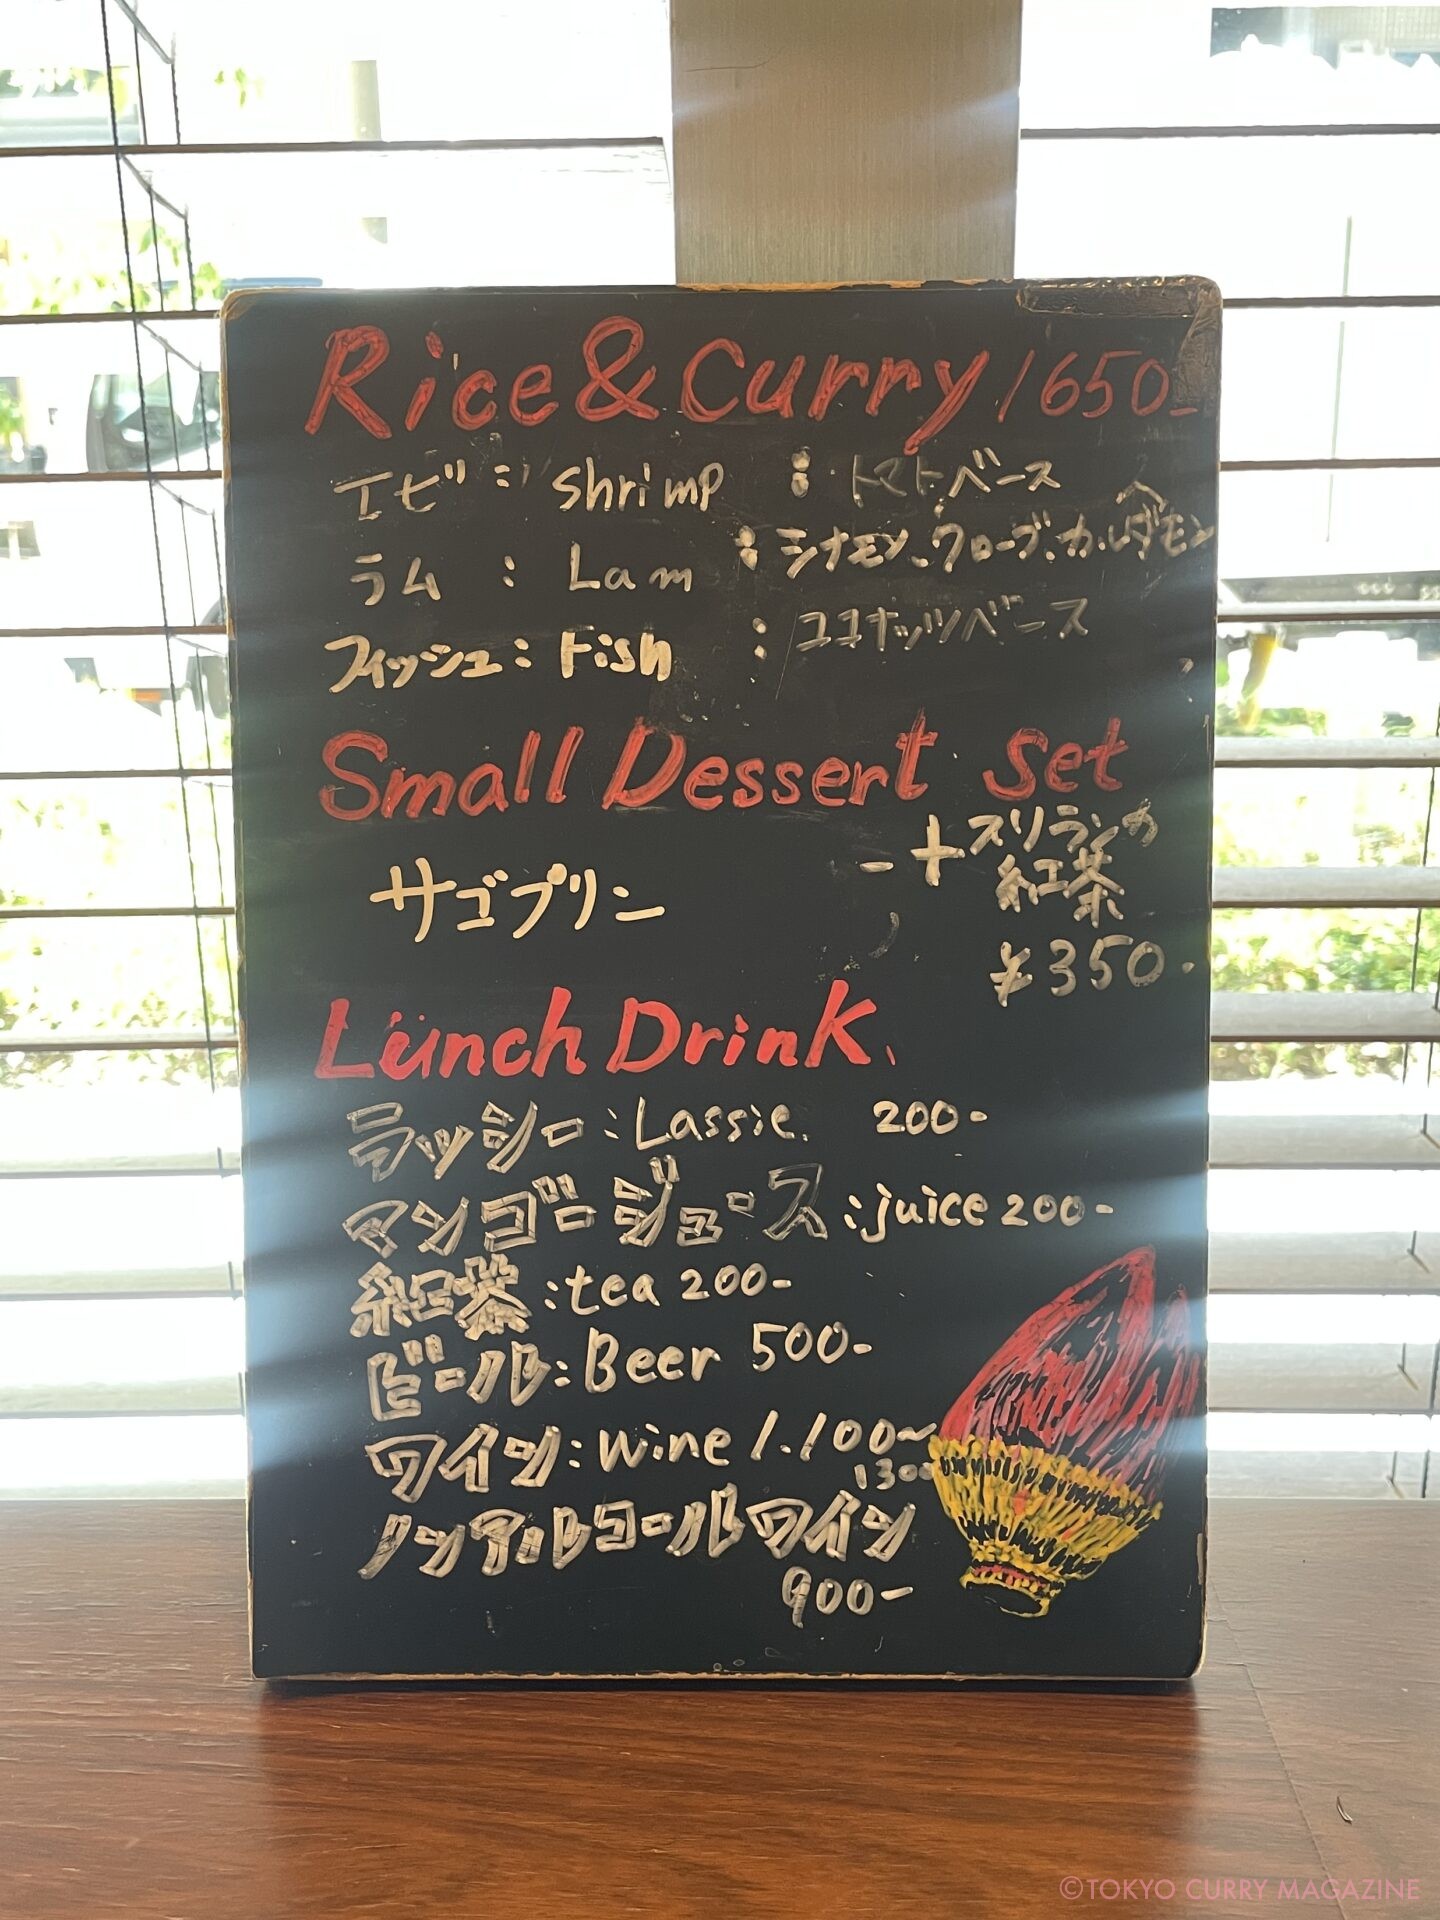 Rice & Curry 1650-
エビ : shrimp : トマトベース
ラム : Lam : シナモン、クローブ、カルダモン
フィッシュ : Fish : ココナッツベース
Small Dessert Set
サゴプリン - + スリランカ
紅茶
¥350-
Lunch Drink
ラッシー : Lassie. 200-
マンゴージュース : juice 200-
紅茶 : tea 200-
ビール : Beer 500-
ワイン : wine 1.100~
1300
ノンアルコールワイン
900-
©TOKYO CURRY MAGAZINE